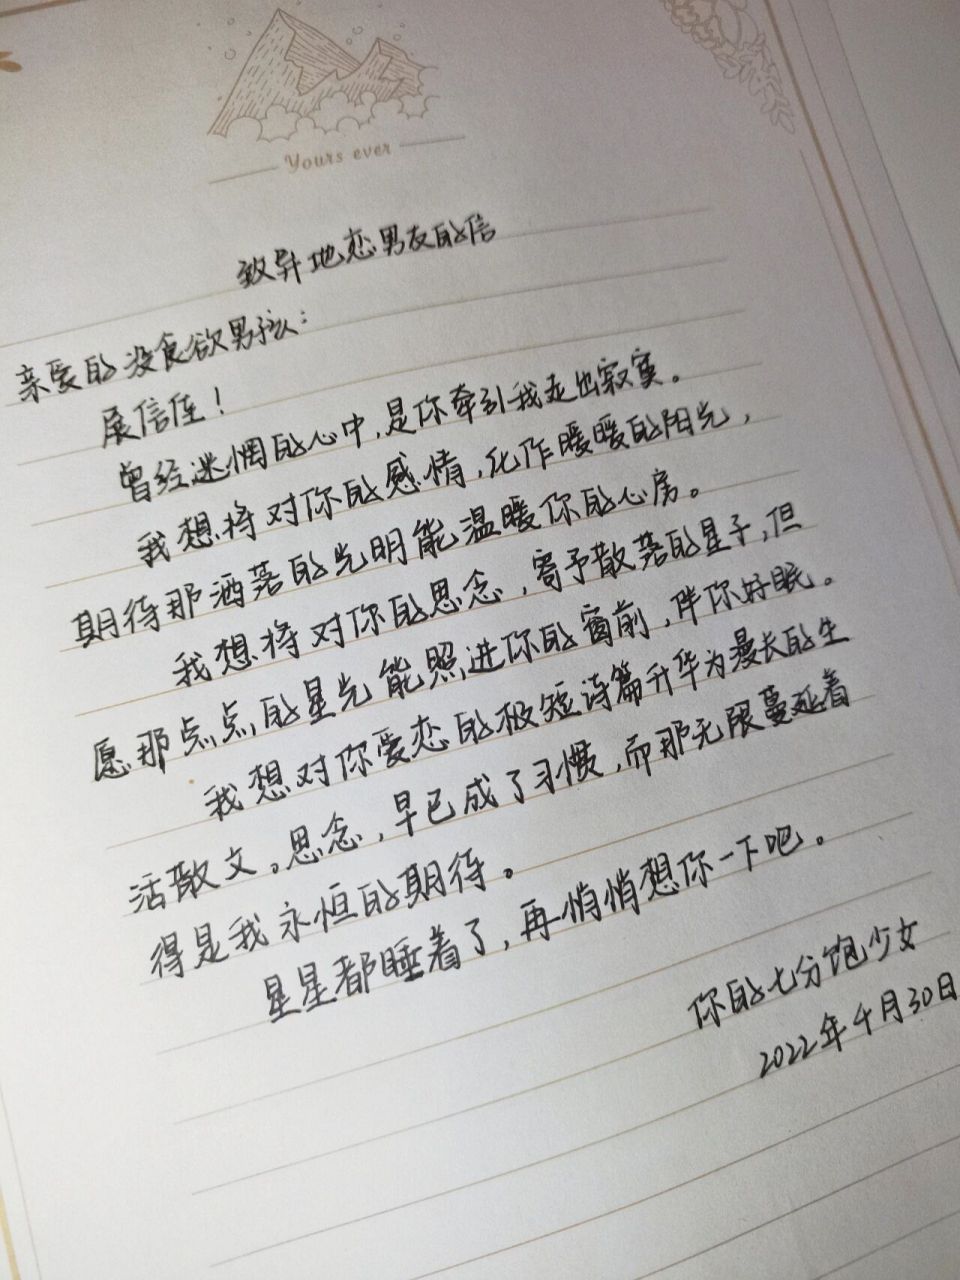 Yours ever
致异地恋男友的信
亲爱的没食欲男孩：
展信佳！
曾经迷惘的心中，是你牵引我走出寂寞。
我想将对你的感情，化作暖暖的阳光，
期待那洒落的光明能温暖你的心房。
我想将对你的思念，寄予散落的星子，但
愿那点点的星光能照进你的窗前，伴你好眠。
我想对你爱恋的极短诗篇升华为漫长的生
活散文。思念，早已成了习惯，而那无限蔓延着
得是我永恒的期待。
星星都睡着了，再悄悄想你一下吧。
你的七分饱少女
2022年4月30日